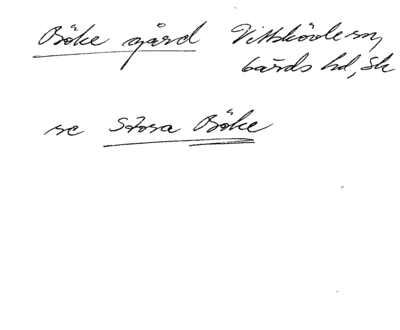 Böke gård Vittskövle sn,
Gärds hd, Sk
se Stora Böke